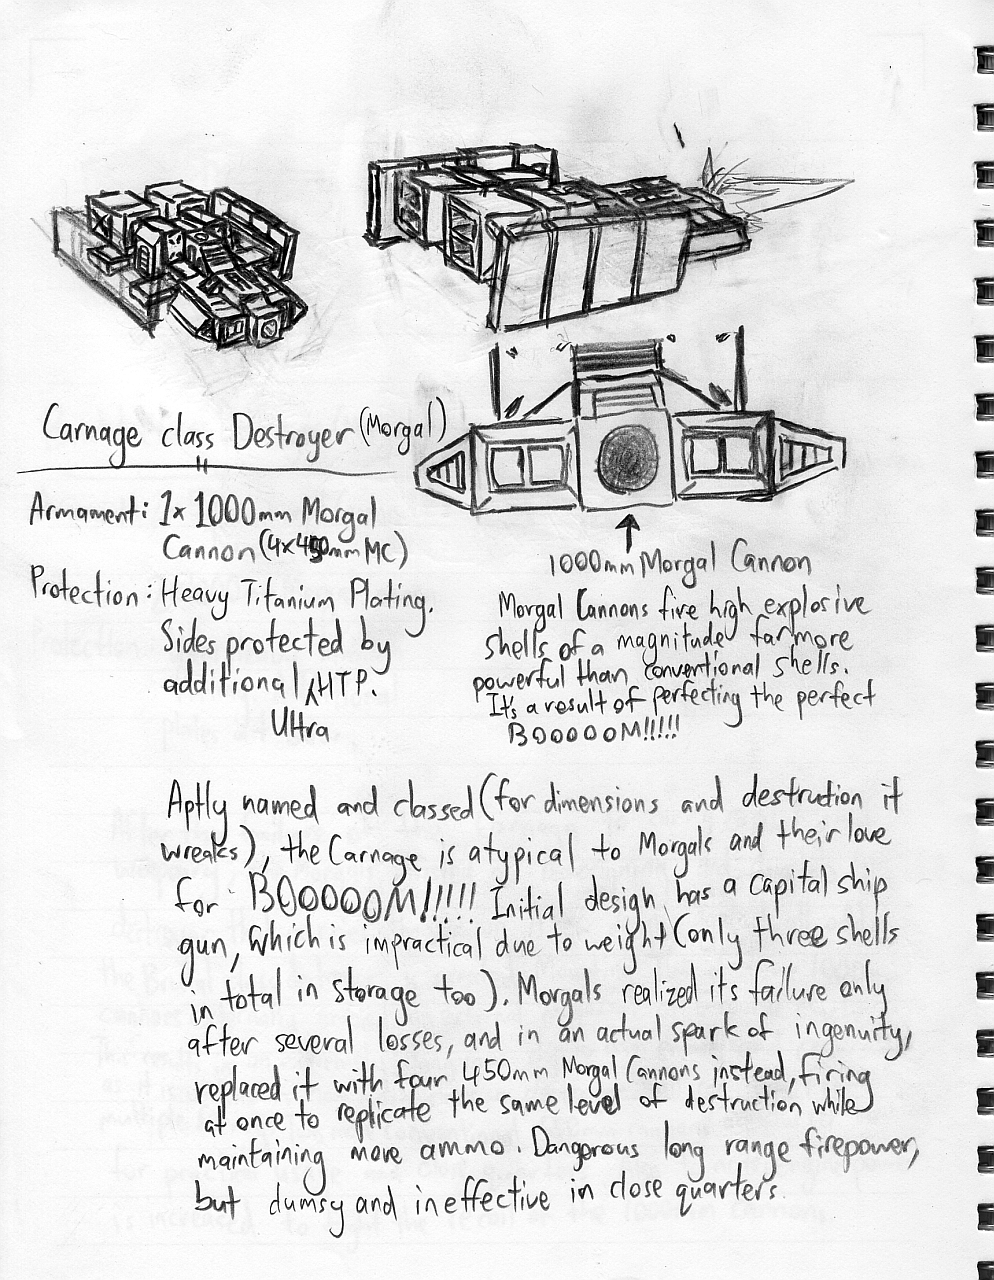 Carnage class Destroyer (Morgal)
Armament: 1x 1000mm Morgal
Cannon (4x450mm MC)
Protection: Heavy Titanium Plating.
Sides protected by
additional ^ HTP.
Ultra
1000mm Morgal Cannon
Morgal Cannons fire high explosive
shells of a magnitude far more
powerful than conventional shells.
It's a result of perfecting the perfect
BOOOOOM!!!!!
Aptly named and classed (for dimensions and destrution it
wreaks), the Carnage is atypical to Morgals and their love
for BOOOOOM!!!!! Initial design has a capital ship
gun, which is impractical due to weight (only three shells
in total in storage too). Morgals realized its failure only
after several losses, and in an actual spark of ingenuity,
replaced it with four 450mm Morgal Cannons instead, firing
at once to replicate the same level of destruction while
maintaining more ammo. Dangerous long range firepower,
but clumsy and ineffective in close quarters.